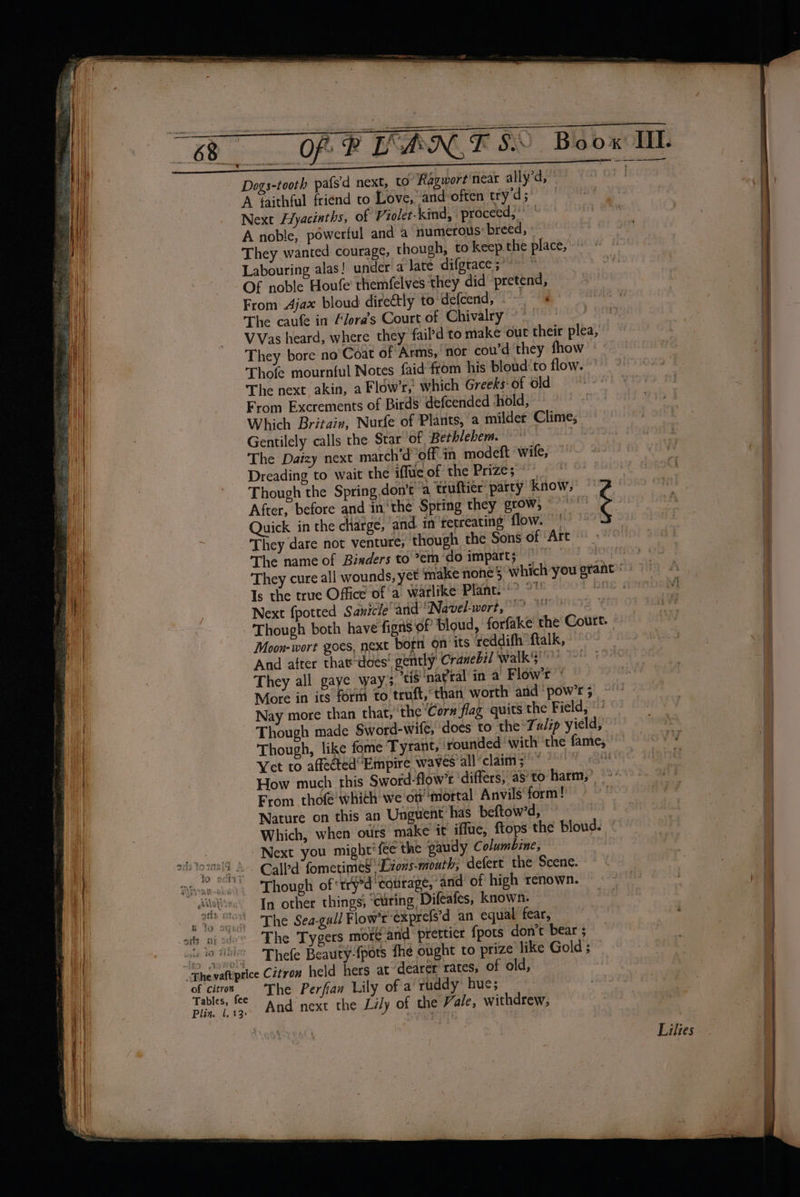 68 Of PLANTS. Book III.
Dogs-tooth paſs'd next, to Ragwort near ally'd,
A faithful friend to Love, and often try'd;
Next Hyacinths, of Violet-kind, proceed,
A noble, powerful and a numerous breed,
They wanted courage, though, to keep the place,
Labouring alas! under a late diſgrace;
Of noble Houſe themſelves they did pretend,
From Ajax bloud directly to deſcend,
The cauſe in Flora's Court of Chivalry
VVas heard, where they fail'd to make out their plea,
They bore no Coat of Arms, nor cou'd they ſhow
Thoſe mournful Notes ſaid from his bloud to flow.
The next akin, a Flow'r, which Greeks of old
From Excrements of Birds deſcended hold,
Which Britain, Nurſe of Plants, a milder Clime,
Gentilely calls the Star of Bethlehem.
The Daizy next march'd off in modeſt wiſe,
Dreading to wait the iſſue of the Prize;
Though the Spring don't a truſtier party know,
After, before and in the Spring they grow,
Quick in the charge, and in retreating ſlow.
They dare not venture, though the Sons of Art
The name of Binders to 'em do impart;
They cure all wounds, yet make none; which you grant
Is the true Office of a warlike Plant.
Next ſpotted Sanicle and Navel-wort,
Though both have ſigns of bloud, forſake the Court.
Moon-wort goes, next born on its reddiſh ſtalk,
And after that does gently Cranebil walk;
They all gave way; 'tis nat'ral in a Flow'r
More in its form to truſt, than worth and pow'r;
Nay more than that, the Corn flag quits the Field,
Though made Sword-wiſe, does to the Tulip yield,
Though, like ſome Tyrant, rounded with the ſame,
Yet to affected Empire waves all claim;
How much this Sword-flow'r differs, as to harm,
From thoſe which we on mortal Anvils form!
Nature on this an Unguent has beſtow'd,
Which, when ours make it iſſue, ſtops the bloud.
Next you might ſee the gaudy Columbine,
Call'd ſometimes Lions-mouth, deſert the Scene.
Though of try'd courage, and of high renown.
In other things, curing Diſeaſes, known.
The Sea-gall Flow'r expreſs'd an equal fear,
The Tygers more and prettier ſpots don't bear;
Theſe Beauty-ſpots ſhe ought to prize like Gold;
The vaſt price
of Citron
Tables, ſee
Plin. l. 13.
Citron held hers at dearer rates, of old,
The Perſian Lily of a ruddy hue;
And next the Lily of the Vale, withdrew,
Lilies